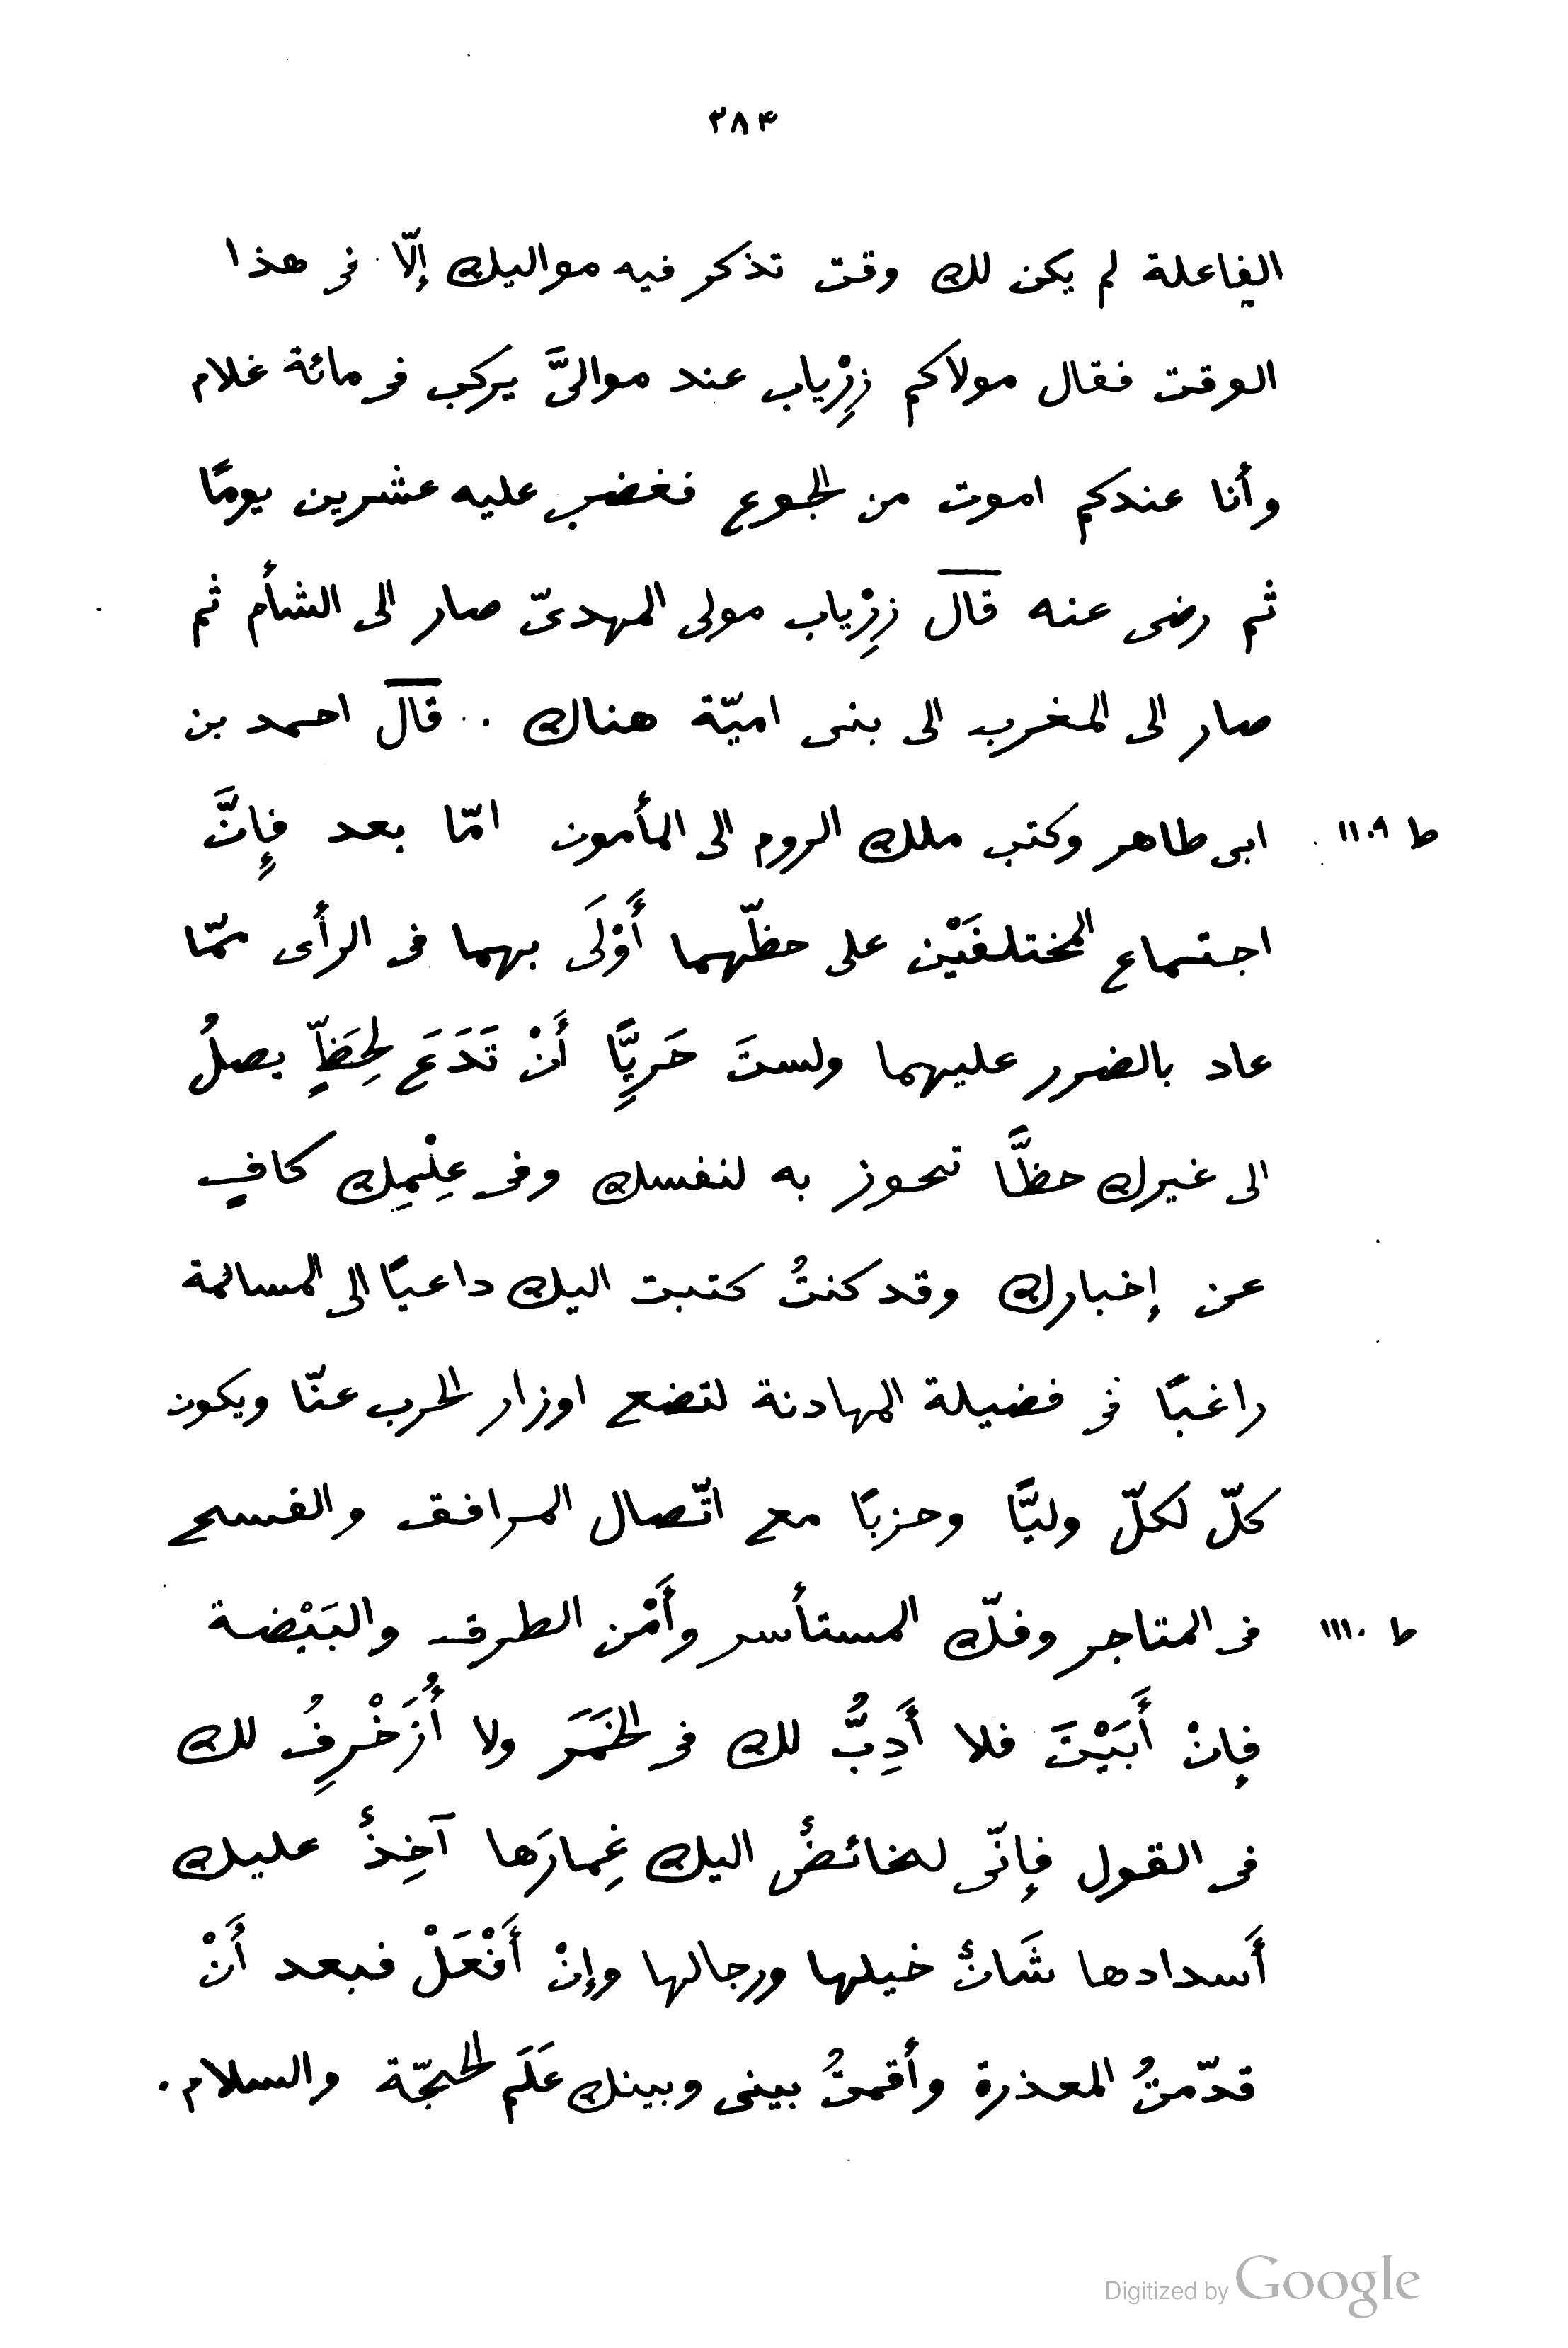 ٢٨۴
الفاعلة لم يكن لك وقت تذكر فيه مواليك إلّا فى هذا
الوقت فقال مولاكم زِرْياب عند موالىَّ يركب فى مائة غلام
وأنا عندكم اموت من الجوع فغضب عليه عشرين يومًا
ثم رضى عنه قال زِرْياب مولى المهدىّ صار الى الشأم ثم
صار الى المغرب الى بنى اميّة هناك .. قال احمد بن
ابى طاهر وكتب ملك الروم الى المأمون امّا بعد فإنَّ ط ١١٠٩
اجتماع المختلفَيْن على حظّهما أَوْلَى بهما فى الرأى ممّا
عاد بالضرر عليهما ولستَ حَرِيًّا أَنْ تَدَعَ لِحَظٍّ يصلُ
الى غيرك حظًّا تحوز به لنفسك وفى عِلْمِك كافٍ
عن إخبارك وقد كنتُ كتبت اليك داعيًا الى المسالمة
راغبًا فى فضيلة المهادنة لتضع اوزار الحرب عنّا ويكون
كلّ لكلّ وليًّا وحزبًا مع اتّصال المرافق والفسح
فى المتاجر وفكّ المستأسر وأَمْن الطرق والبَيْضة ط ١١١٠
فإنْ أَبَيْتَ فلا أَدِبُّ لك فى الخَمَرَ ولا أُزَخْرِفُ لك
فى القول فإنّى لخائضٌ اليك غِمارَها آخِذٌ عليك
أَسدادها شَانٌ خيلها ورجالها وإنْ أَفْعَلْ فبعد أَنْ
قدّمتُ المعذرة وأقمتُ بينى وبينك عَلَم الحجّة والسلام .
Digitized by Google